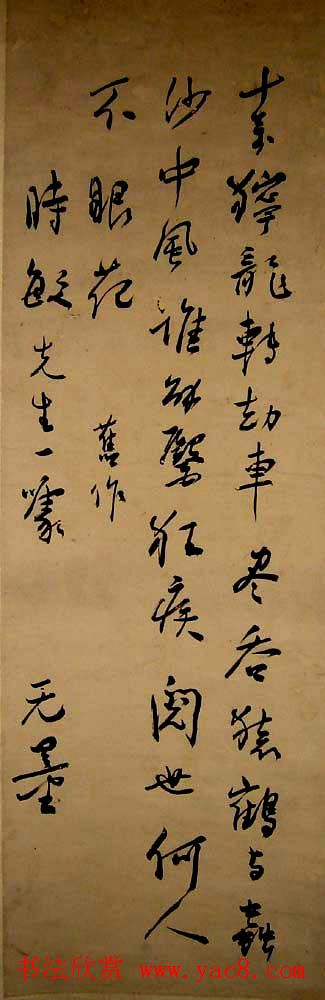 十年獰龍轉劫車尽吞猿鶴与蟲
沙中風誰解醫狂疾閱世何人
不眼花 舊作
時敏先生一噱
无量
书法欣赏 www.yac8.com